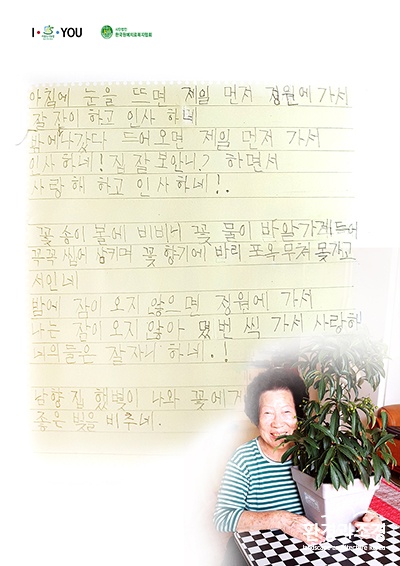 I·YOU
사단법인
한국원예치료복지협회
아침에 눈을 뜨면 제일 먼저 정원에 가서
잘 잤이 하고 인사 하네
밖에나갔다 드어오면 제일 먼저 가서
인사 하네! 집 잘 보안니? 하면서
사랑해 하고 인사하네!.
꽃 송이 볼에 비비니 꽃 물이
꼭꼭 씹에 삼키며 꽃 향기에 바리 포옥 무쳐 못가고
서인네
밤에 잠이 오지 않으면 정원에 가서
나는 잠이 오지 않아 몇 번 씩 가서 사랑해
너의들은 잘자니 하네.!
남향 집 했볓이 나와 꽃에게
좋은 빛을 비추네.
환경과조경
landscape architecture korea